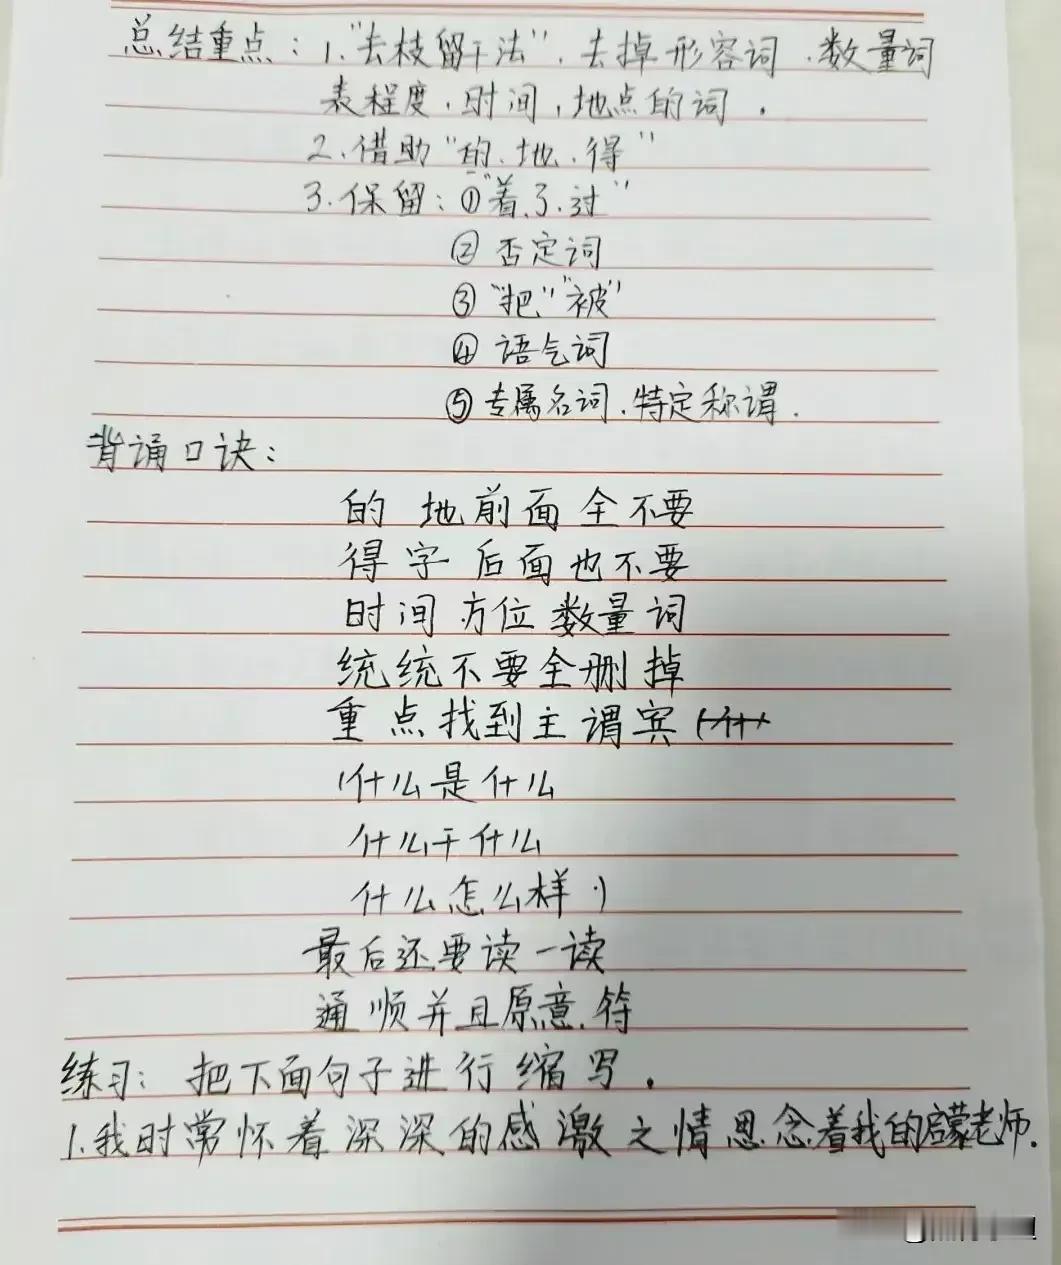 总结重点：1."去枝留干法"．去掉形容词．数量词
表程度．时间，地点的词．
2.借助"的．地．得"
3.保留：①"着.了.过"
②否定词
③"把""被"
④语气词
⑤专属名词．特定称谓．
背诵口诀：
的 地前面全不要
得字后面也不要
时间方位数量词
统统不要全删掉
重点找到主谓宾
(什么是什么
什么干什么
什么怎么样)
最后还要读一读
通顺并且原意符
练习：把下面句子进行缩写．
1.我时常怀着深深的感激之情思念着我的启蒙老师.